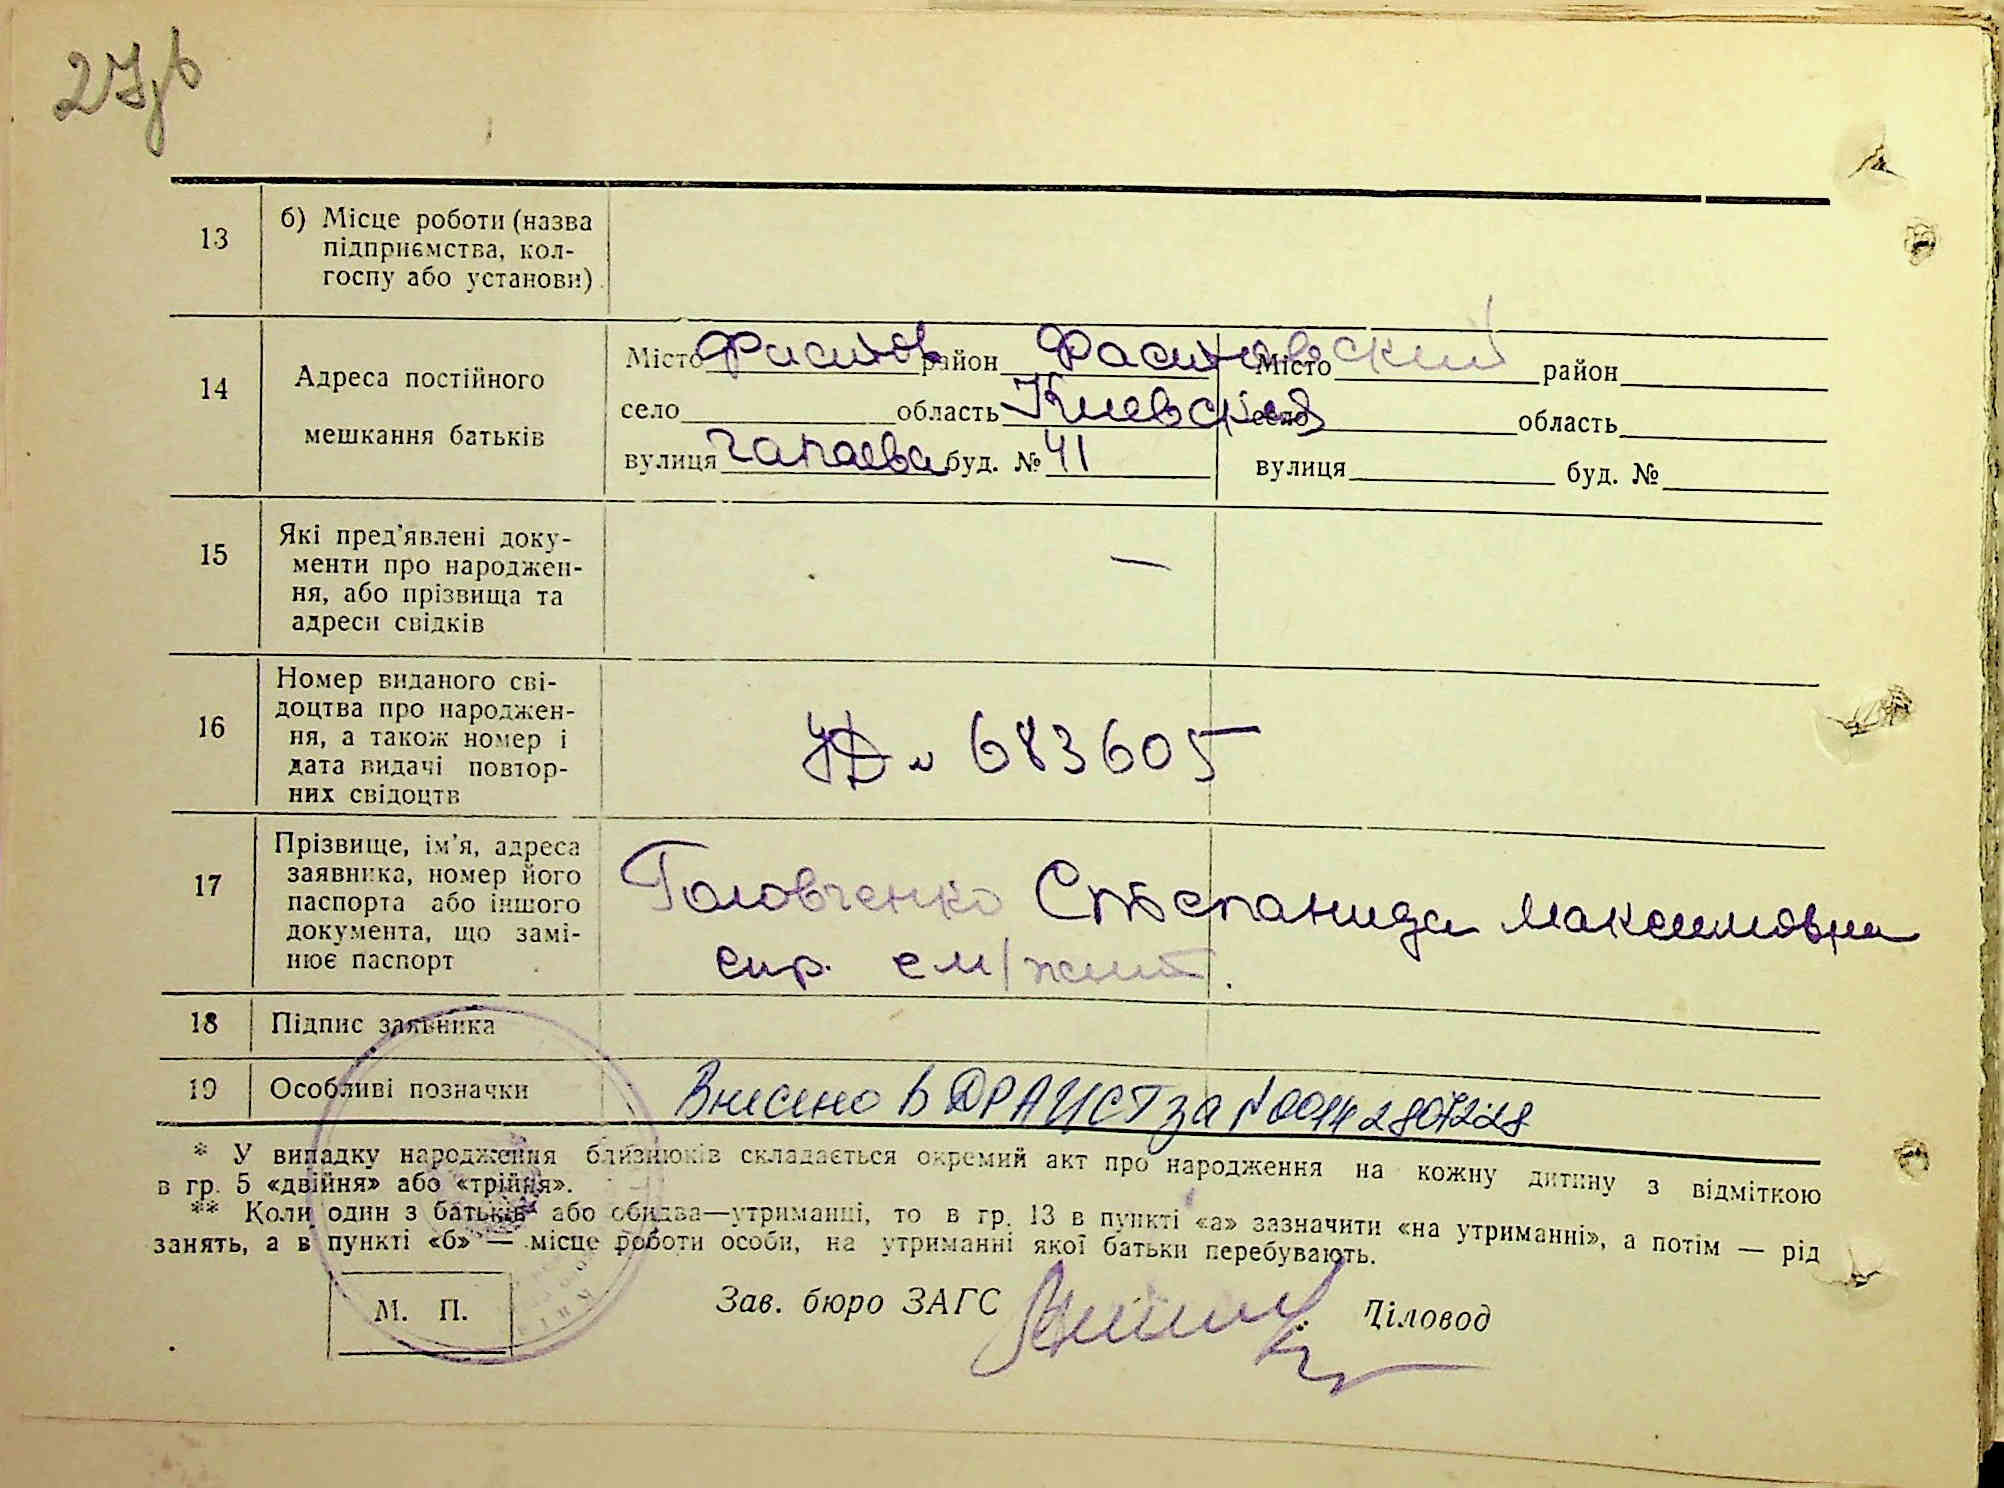 27
13
б) Місце роботи (назва
підприємства, кол-
госпу або установи)
14
Адреса постійного
мешкання батьків
Місто Фастов район Фастовский Місто район
село область Киевская село область
вулиця Чапаева буд. № 41 вулиця буд. №
15
Які пред'явлені доку-
менти про народжен-
ня, або прізвища та
адреси свідків
—
16
Номер виданого сві-
доцтва про народжен-
ня, а також номер і
дата видачі повтор-
них свідоцтв
№ 683605
17
Прізвище, ім'я, адреса
заявника, номер його
паспорта або іншого
документа, що замі-
нює паспорт
Головченко Степанида Максимовна
спр. ем/жит.
18
Підпис заявника
19
Особливі позначки
Внесено в ДРАЦСГ за №00142807228
* У випадку народження близнюків складається окремий акт про народження на кожну дитину з відміткою
в гр. 5 «двійня» або «трійня».
** Коли один з батьків або обидва—утриманці, то в гр. 13 в пункті «а» зазначити «на утриманні», а потім — рід
занять, а в пункті «б» — місце роботи особи, на утриманні якої батьки перебувають.
М. П.
Зав. бюро ЗАГС
Діловод